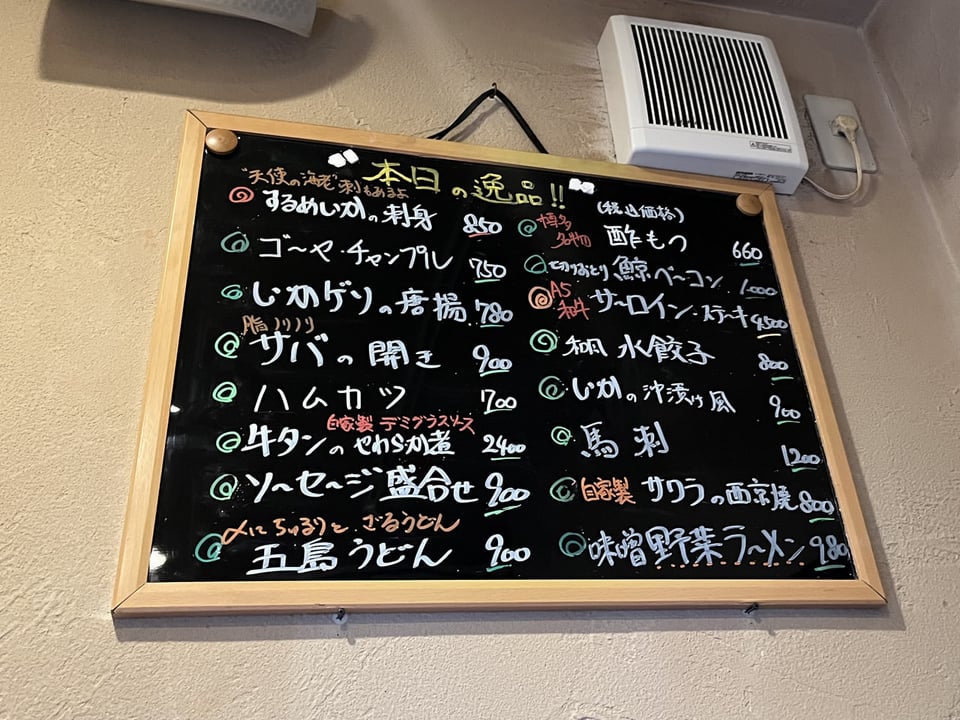 本日の逸品!!
(税込価格)
"天使の海老"刺もあるよ
するめいかの刺身 850
ゴーヤ・チャンプル 750
いかゲソの唐揚 780
脂ノリノリ
サバの開き 900
ハムカツ 700
自家製 デミグラスソース
牛タンのやわらか煮 2400
ソーセージ盛合せ 900
〆にちゅるりと ざるうどん
五島うどん 900
博多名物 酢もつ 660
切りおとし 鯨ベーコン 1000
A5和牛 サーロイン・ステーキ 4500
水餃子 800
いかの沖漬け風 900
馬刺 1200
自家製 サワラの西京焼 800
味噌野菜ラーメン 980